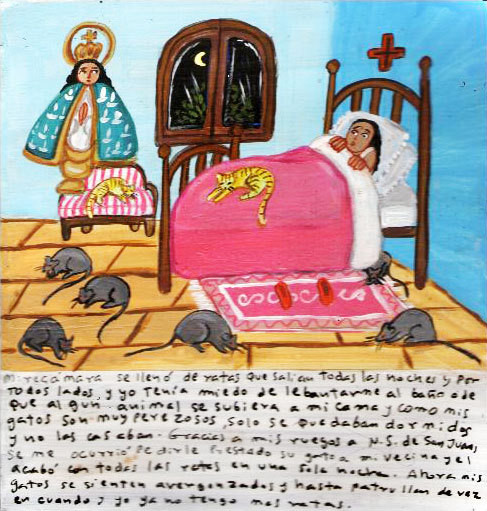 Mi recamara se llenó de ratas que salian todas las noches y por
todos lados, y yo tenía miedo de lebantarme al baño o de
que algun animal se subiera a mi cama y como mis
gatos son muy perezosos, solo se quedaban dormidos
y no las casaban. Gracias a mis ruegos a N.S. de San Juan,
se me ocurrio pedirle prestado su gato a mi vecina y el
acabó con todas las ratas en una sola noche. Ahora mis
gatos se sienten avergonzados y hasta patrullan de vez
en cuando y yo ya no tengo mas ratas.